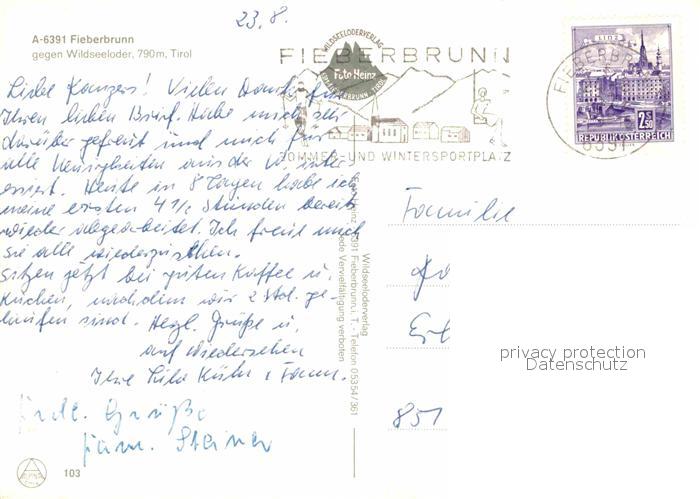 23.8.
A-6391 Fieberbrunn
gegen Wildseeloder, 790m, Tirol
WILDSEELODERVERLAG
Foto Heinz
FIEBERBRUNN
SOMMER- UND WINTERSPORTPLATZ
LINZ
2.50
REPUBLIK ÖSTERREICH
FIEBERBR
6391
Liebe Kanzers! Vielen Dank für
Ihren lieben Brief. Habe mich sehr
darüber gefreut und mich für
alle Neuigkeiten aus der inter
essiert. Heute in 8 Tagen habe ich
meine ersten 4 1/2 Stunden bereits
wieder abgearbeitet. Ich freue mich
Sie alle wiederzusehen.
Sitzen jetzt bei gutem Kaffee u.
Kuchen, nachdem wir 2 Std. ge-
laufen sind. Herzl. Grüße u.
auf Wiedersehen
Ihre
Grüße
Fam. Steiner
Familie
851
Wildseeloderverlag
Foto Heinz, 6391 Fieberbrunn i. T. - Telefon 05354/361
Jede Vervielfältigung verboten
privacy protection
Datenschutz
103